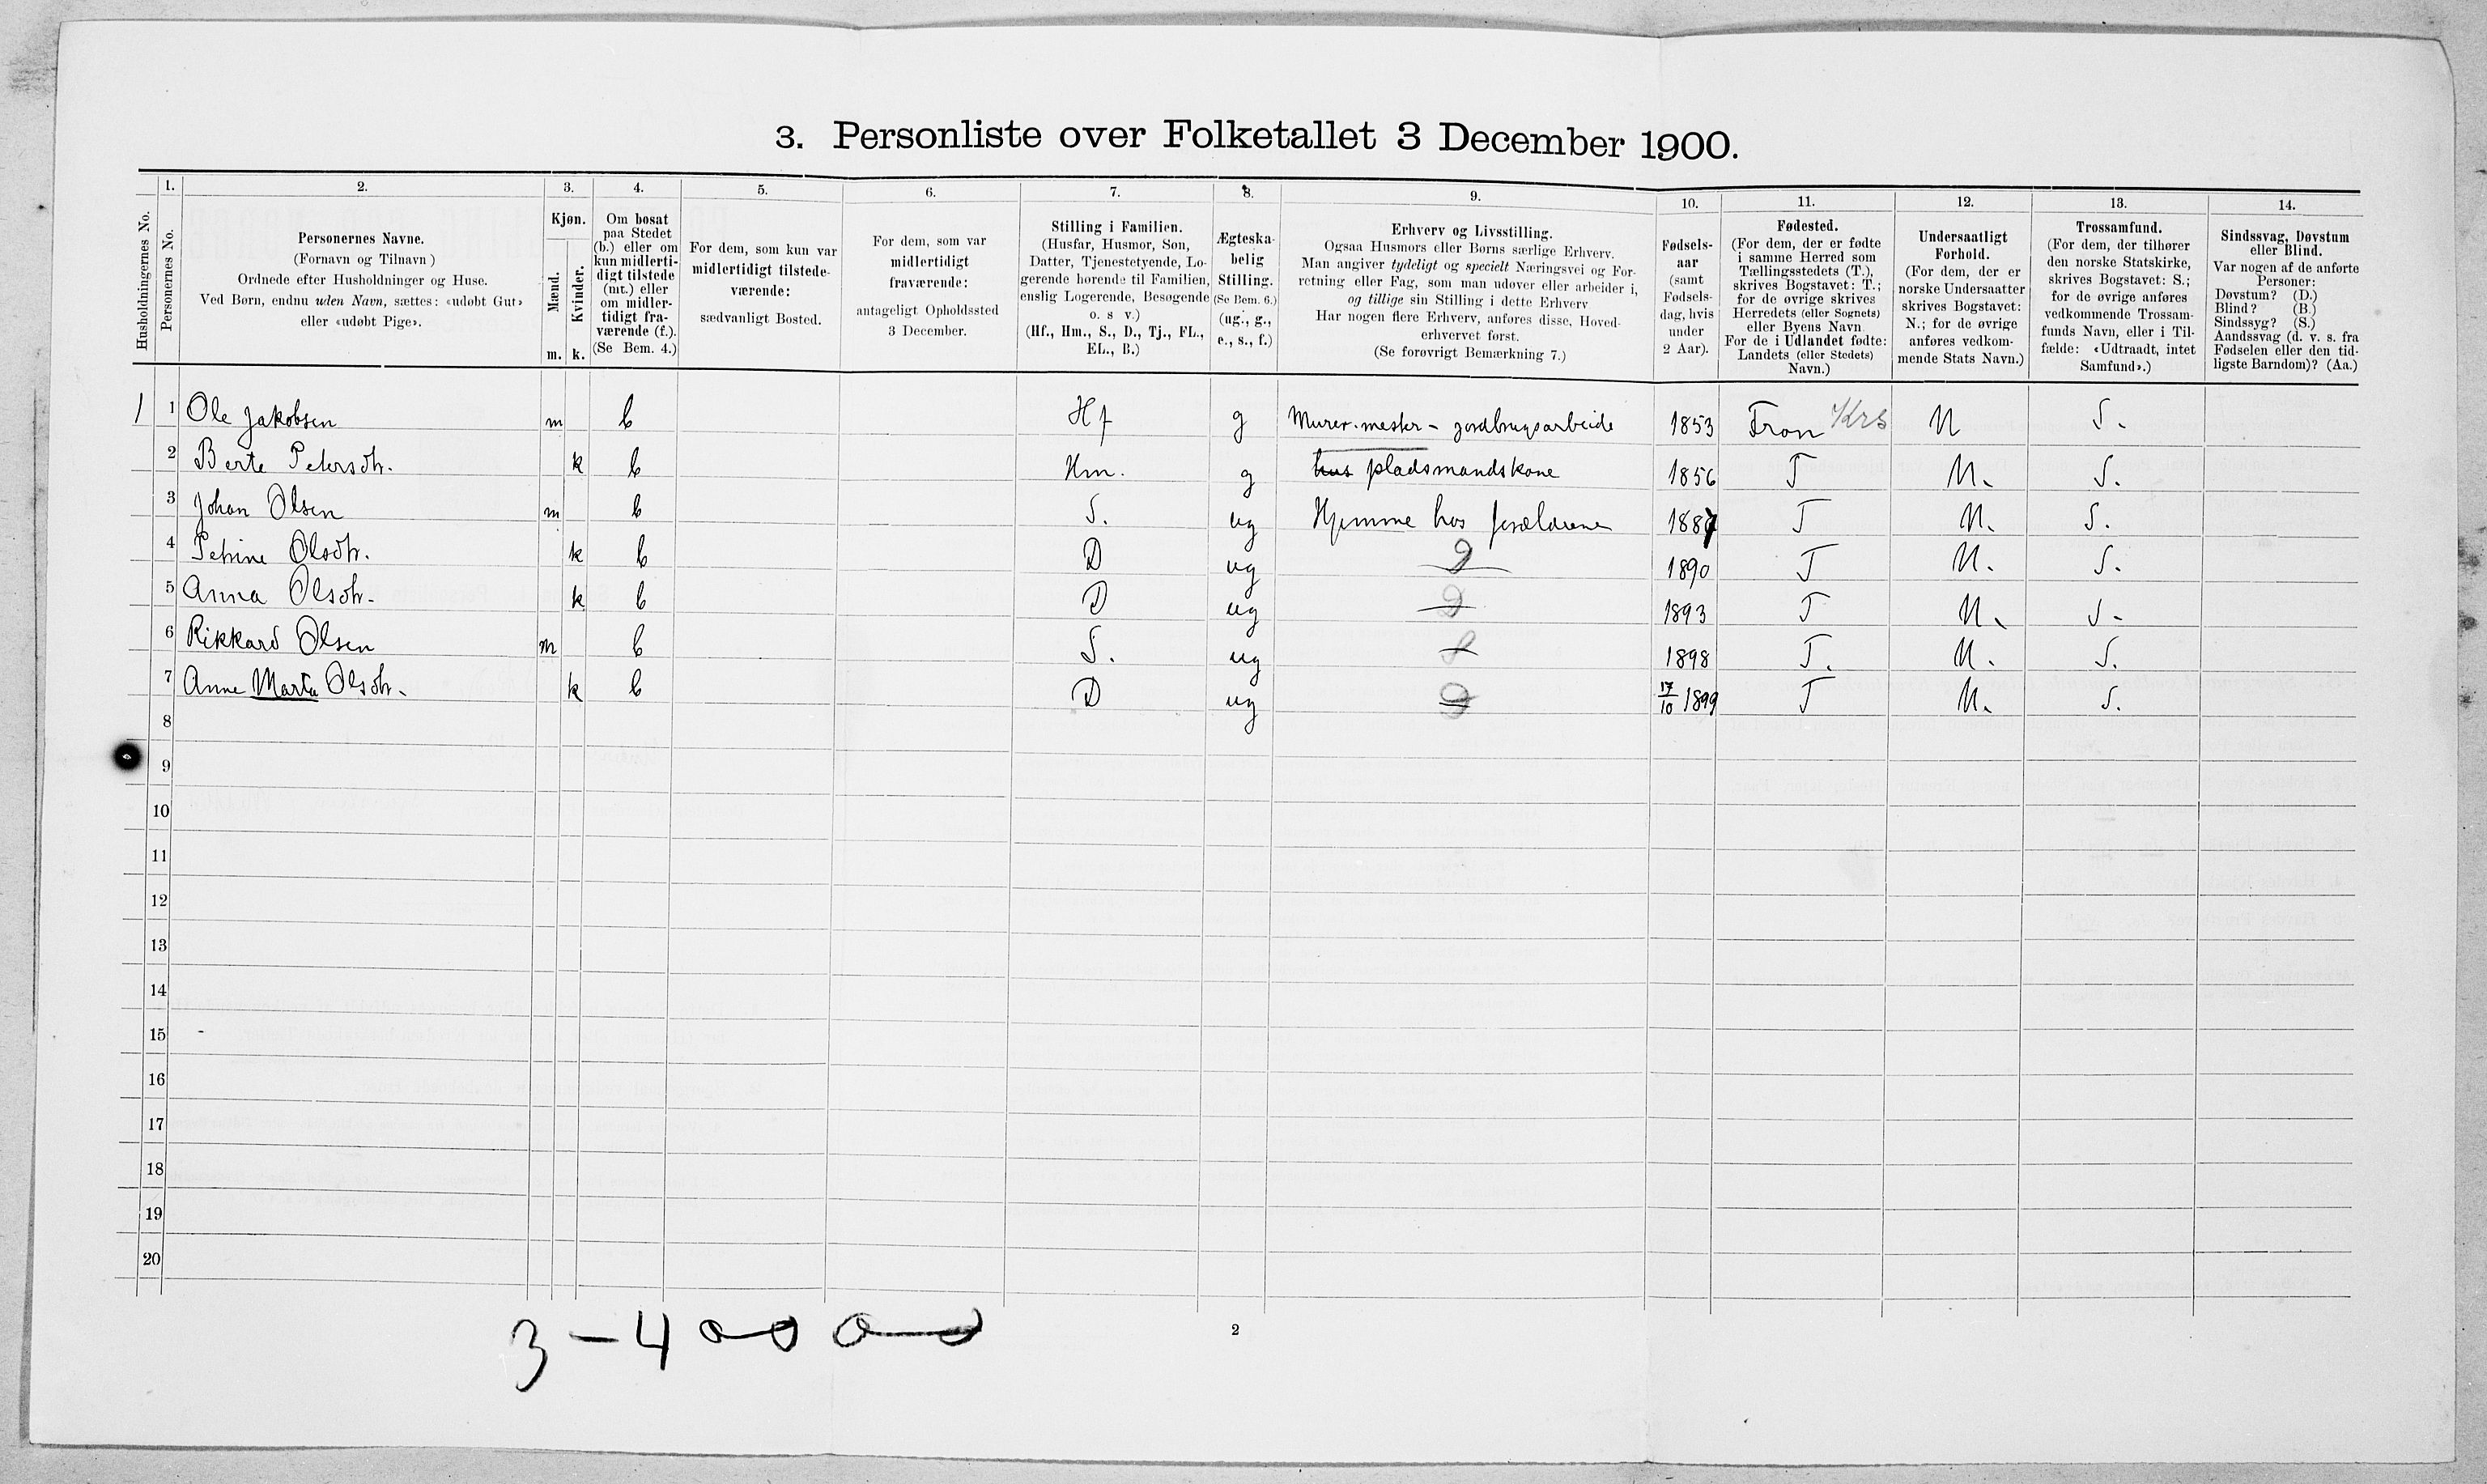 3. Personliste over Folketallet 3 December 1900.
1. 2. 3. 4. 5. 6. 7. 8. 9. 10. 11. 12. 13. 14.
Husholdningernes No.
Personernes No.
Personernes Navne.
(Fornavn og Tilnavn)
Ordnede efter Husholdninger og Huse.
Ved Børn, endnu uden Navn, sættes: «udøbt Gut»
eller «udøbt Pige».
Kjøn.
Mænd.
Kvinder.
m. k.
Om bosat
paa Stedet
(b.) eller om
kun midlerti-
digt tilstede
(mt.) eller
om midler-
tidigt fra-
værende (f.).
(Se Bem. 4.)
For dem, som kun var
midlertidigt tilstede-
værende:
sædvanligt Bosted.
For dem, som var
midlertidigt
fraværende:
antageligt Opholdssted
3 December.
Stilling i Familien.
(Husfar, Husmor, Søn,
Datter, Tjenestetyende, Lo-
gerende hørende til Familien,
enslig Logerende, Besøgende
o. s v.)
(Hf., Hm., S., D., Tj., FL.,
EL., B.)
Ægteska-
belig
Stilling.
(Se Bem. 6.)
(ug., g.,
e., s., f.)
Erhverv og Livsstilling.
Ogsaa Husmors eller Børns særlige Erhverv.
Man angiver tydeligt og specielt Næringsvei og For-
retning eller Fag, som man udøver eller arbeider i,
og tillige sin Stilling i dette Erhverv
Har nogen flere Erhverv, anføres disse, Hoved-
erhvervet først.
(Se forøvrigt Bemærkning 7.)
Fødsels-
aar
(samt
Fødsels-
dag, hvis
under
2 Aar).
Fødested.
(For dem, der er fødte
i samme Herred som
Tællingsstedets (T.),
skrives Bogstavet: T.;
for de øvrige skrives
Herredets (eller Sognets)
eller Byens Navn
For de i Udlandet fødte:
Landets (eller Stedets)
Navn.)
Undersaatligt
Forhold.
(For dem, der er
norske Undersaatter
skrives Bogstavet:
N.; for de øvrige
anføres vedkom-
mende Stats Navn.)
Trossamfund.
(For dem, der tilhører
den norske Statskirke,
skrives Bogstavet: S.;
for de øvrige anføres
vedkommende Trossam-
funds Navn, eller i Til-
fælde: «Udtraadt, intet
Samfund».)
Sindssvag, Døvstum
eller Blind.
Var nogen af de anførte
Personer:
Døvstum? (D.)
Blind? (B.)
Sindssyg? (S.)
Aandssvag (d. v. s. fra
Fødselen eller den tid-
ligste Barndom)? (Aa.)
1 1 Ole Jakobsen m b Hf g Murer.mester - jordbrugsarbeide 1853 Fron Krs N S.
2 Berte Petersdtr. k b Hm. g hus pladsmandskone 1856 T N. S.
3 Johan Olsen m b S. ug Hjemme hos forældrene 1887 T N. S.
4 Petrine Olsdtr. k b D ug 1890 T N. S.
5 Anna Olsdtr. k b D ug 1893 T N. S.
6 Rikkard Olsen m b S. ug 1898 T. N. S.
7 Anne Marta Olsdtr. k b D ug 17/10 1899 T N. S.
8
9
10
11
12
13
14
15
16
17
18
19
20
3 - 4
2